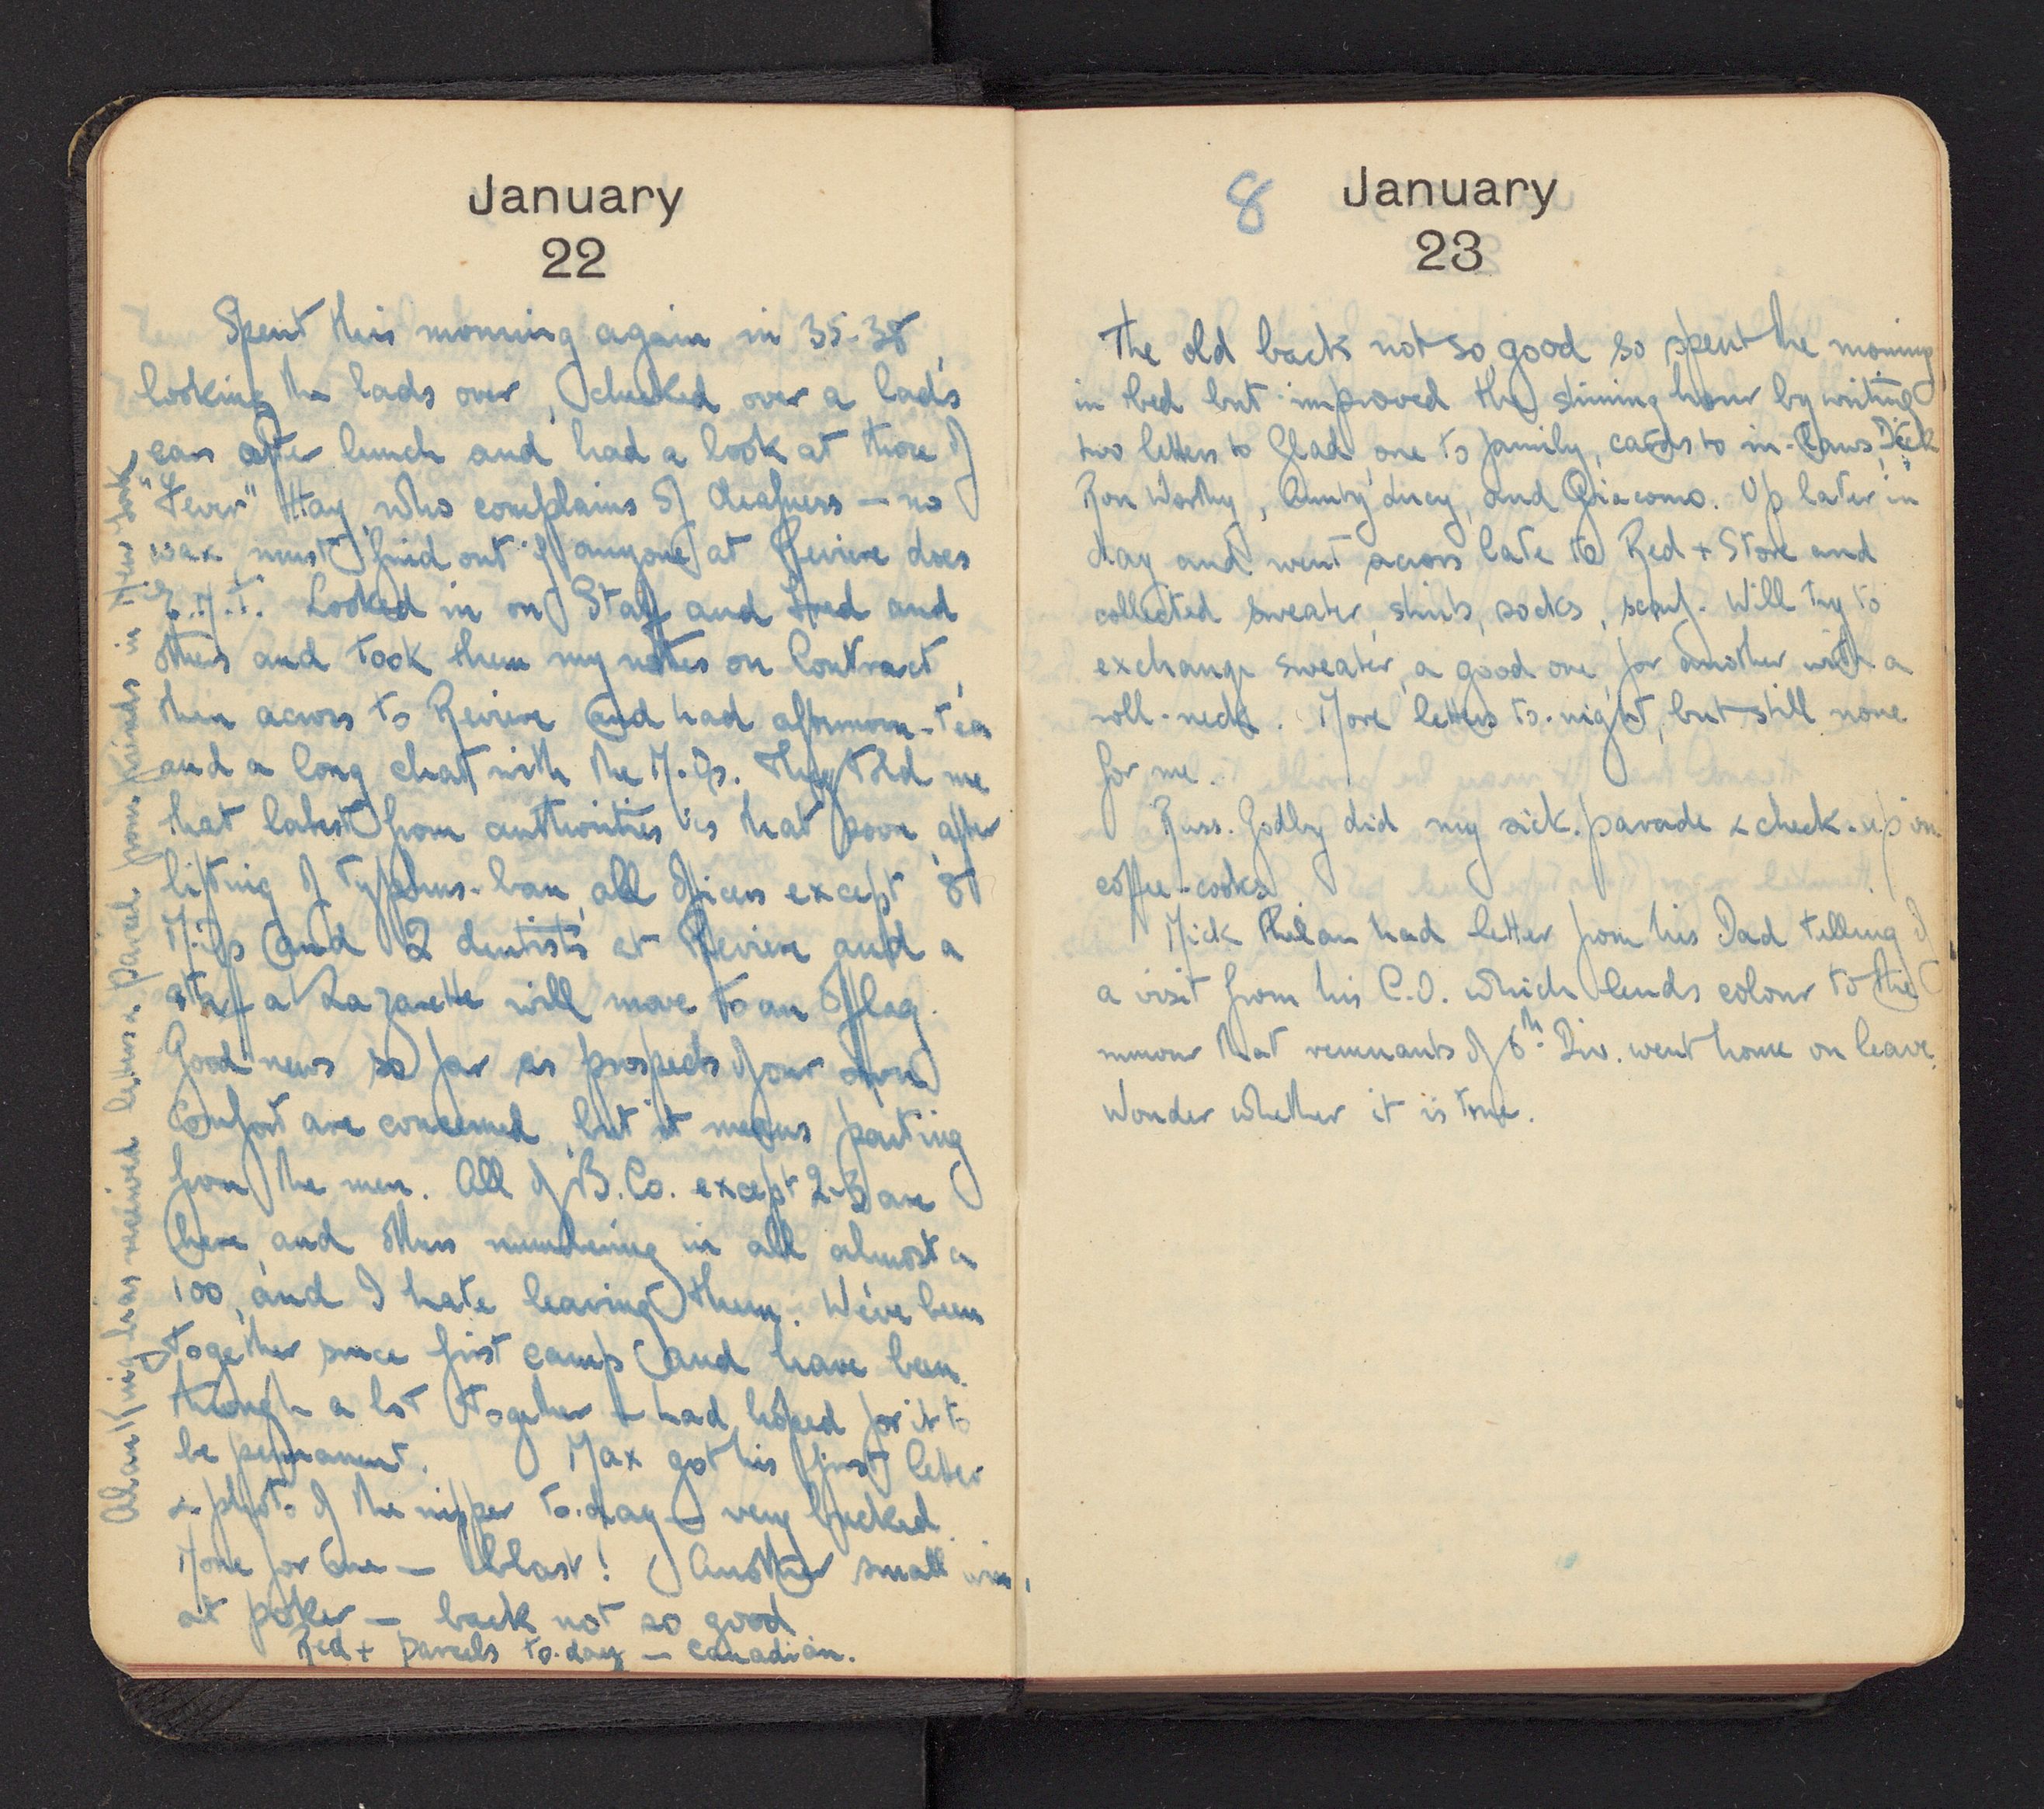 January
22
Spent this morning again in 35-38,
looking the lads over, checked over a lad's
ears after lunch and had a look at those of
"Fever" Hay, who complains of deafness — no
wax, must find out if anyone at Revier does
E.N.T. Looked in on Staff and Fred and
others and took them my notes on Contract,
then across to Revier and had afternoon-tea
and a long chat with the M.O's. They told me
that latest from authorities is that soon after
lifting of typhus-ban, all officers except 8
M.O's and 2 dentists at Revier and a
at Lazarette will move to an Oflag.
Good news so far as prospects of our own
comfort are concerned, but it means parting
from the men. All of B. Co. except 2-3 are
here, and others numbering in all almost a
100, and I hate leaving them. We've been
together since first camp and have been
through a lot together & had hoped for it to
be permanent. Max got his first letter
& photo of the nipper to-day — very bucked.
None for me — blast! Another small win
at poker — back not so good
Red + parcels to-day — Canadian.
has received letters & parcel from friends in New York
8
January
23
The old back not so good so spent the morning
in bed but improved the shining hour by writing
two letters to Glad, one to family, cards to in-laws, Dick
Ron Worthy, Aunty Lucy, and Giacomo. Up later in
day and went across late to Red + Store and
collected sweater, shirts, socks, scarf. Will try to
exchange sweater, a good one, for another with a
roll-neck. More letters to-night, but still none
for me.
Russ. Godby did my sick-parade & check-up on
coffee-cooks.
Mick Phelan had letter from his Dad telling of
a visit from his C.O. which lends colour to the
rumour that remnants of 6th Div. went home on leave.
Wonder whether it is true.